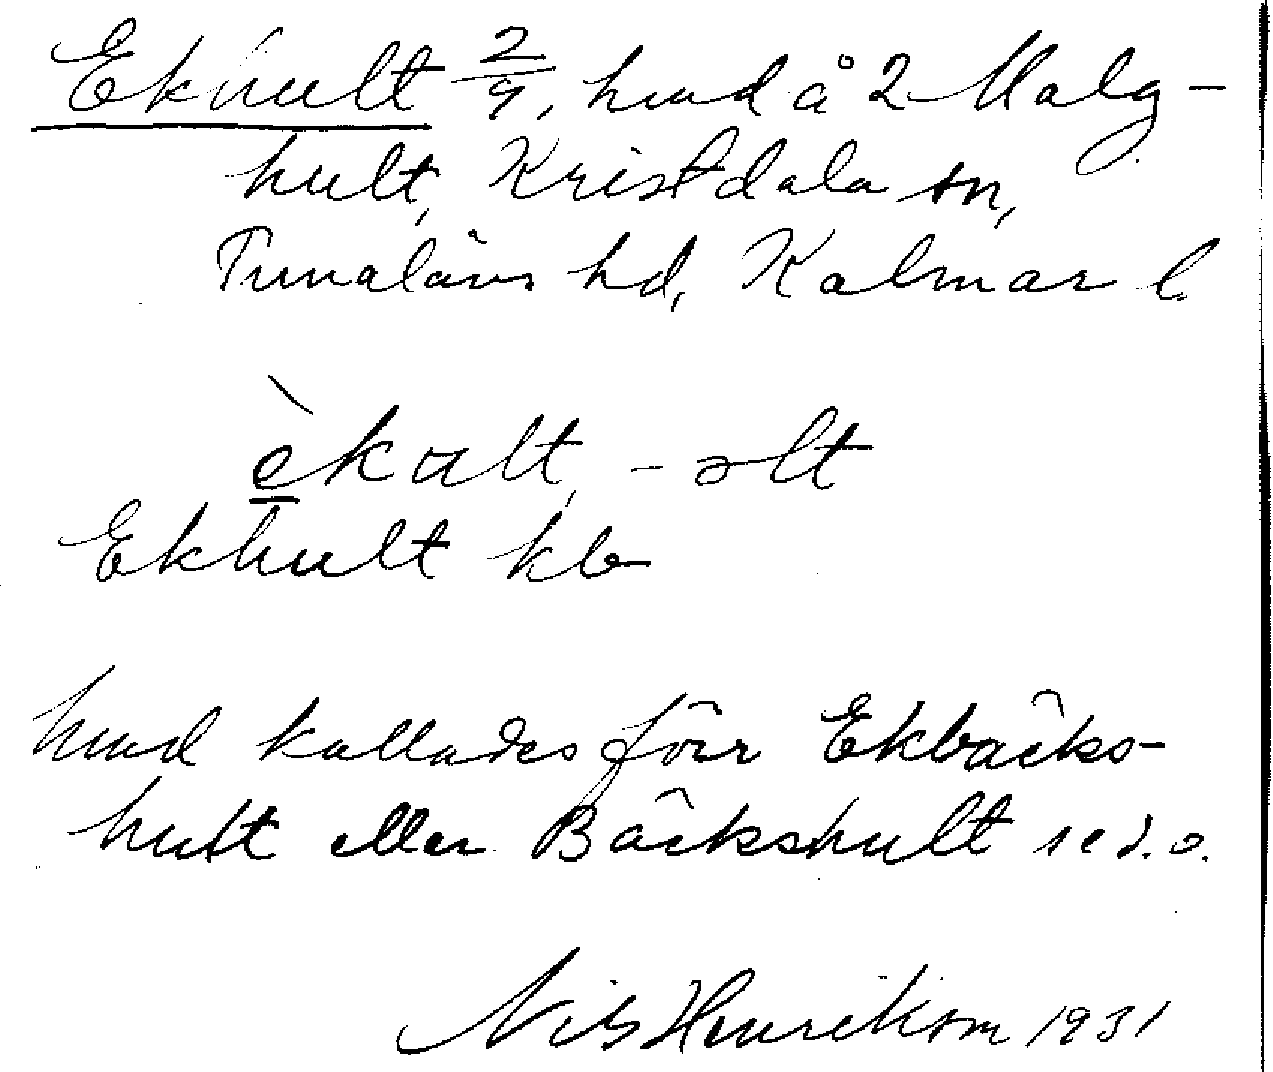 Ekhult 2/9, hmd å 2 Malg-
hult, Kristdala sn,
Tunaläns hd, Kalmar l.
èkalt, -əlt
Ekhult kb
hmd kallades förr Ekbäcks-
hult eller Bäckshult se d.o.
Nils Henrikson 1931